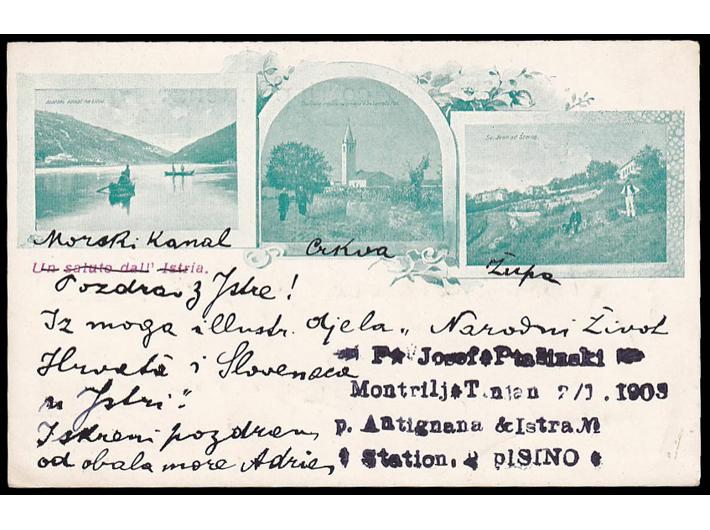 Morski Kanal
Crkva
Župa
Un saluto dall' Istria.
Pozdrav z Istre!
Iz moga illustr. djela „ Narodni Život
Hrvatâ i Slovenaca
u Istri".
Iskreni pozdrav
od obala more Adrie
P. Josef Ptašinski
Montrilj T.n an 2/1.1903
p. Antignana & Istra.M
Station. pISINO